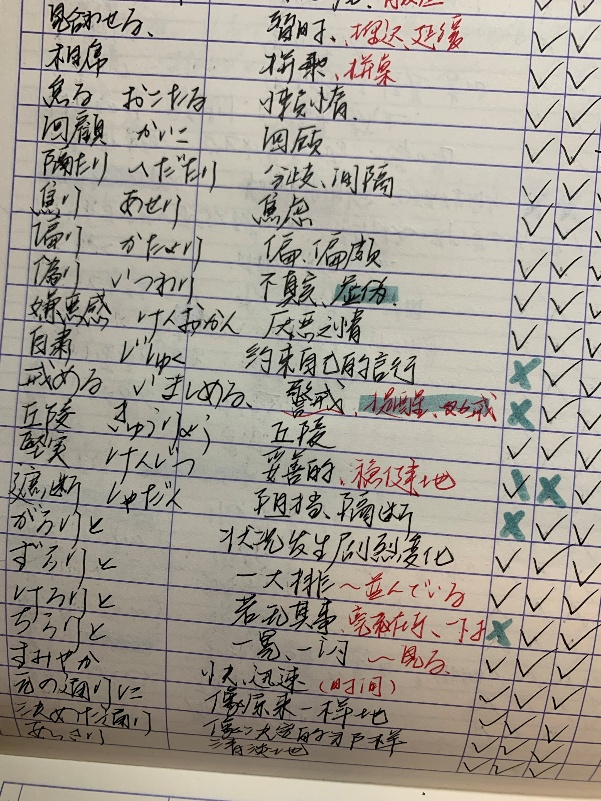 見合わせる、 暂时、推迟 延缓
相席 拼桌、拼桌
怠る おこたる 懒惰
回顧 かいこ 回顾
隔たり へだたり 分歧、间隔
焦り あせり 焦虑
偏り かたより 偏、偏颇
偽り いつわり 不真实、虚伪
嫌悪感 けんおかん 厌恶之情
自粛 じしゅく 约束自己的言行
戒める いましめる、 警戒
丘陵 きゅうりょう 丘陵
堅実 けんじつ 妥善的、稳健地
遮断 しゃだん 阻挡、隔断
がらりと 状况发生剧烈变化
ずらりと 一大排 〜並んでいる
けろりと 若无其事
ちらりと 一晃、一闪 〜見る
すみやか 快、迅速(时间)
元の通りに 像原来一样地
決めた通り 像决定的那样
あっさり 清淡地